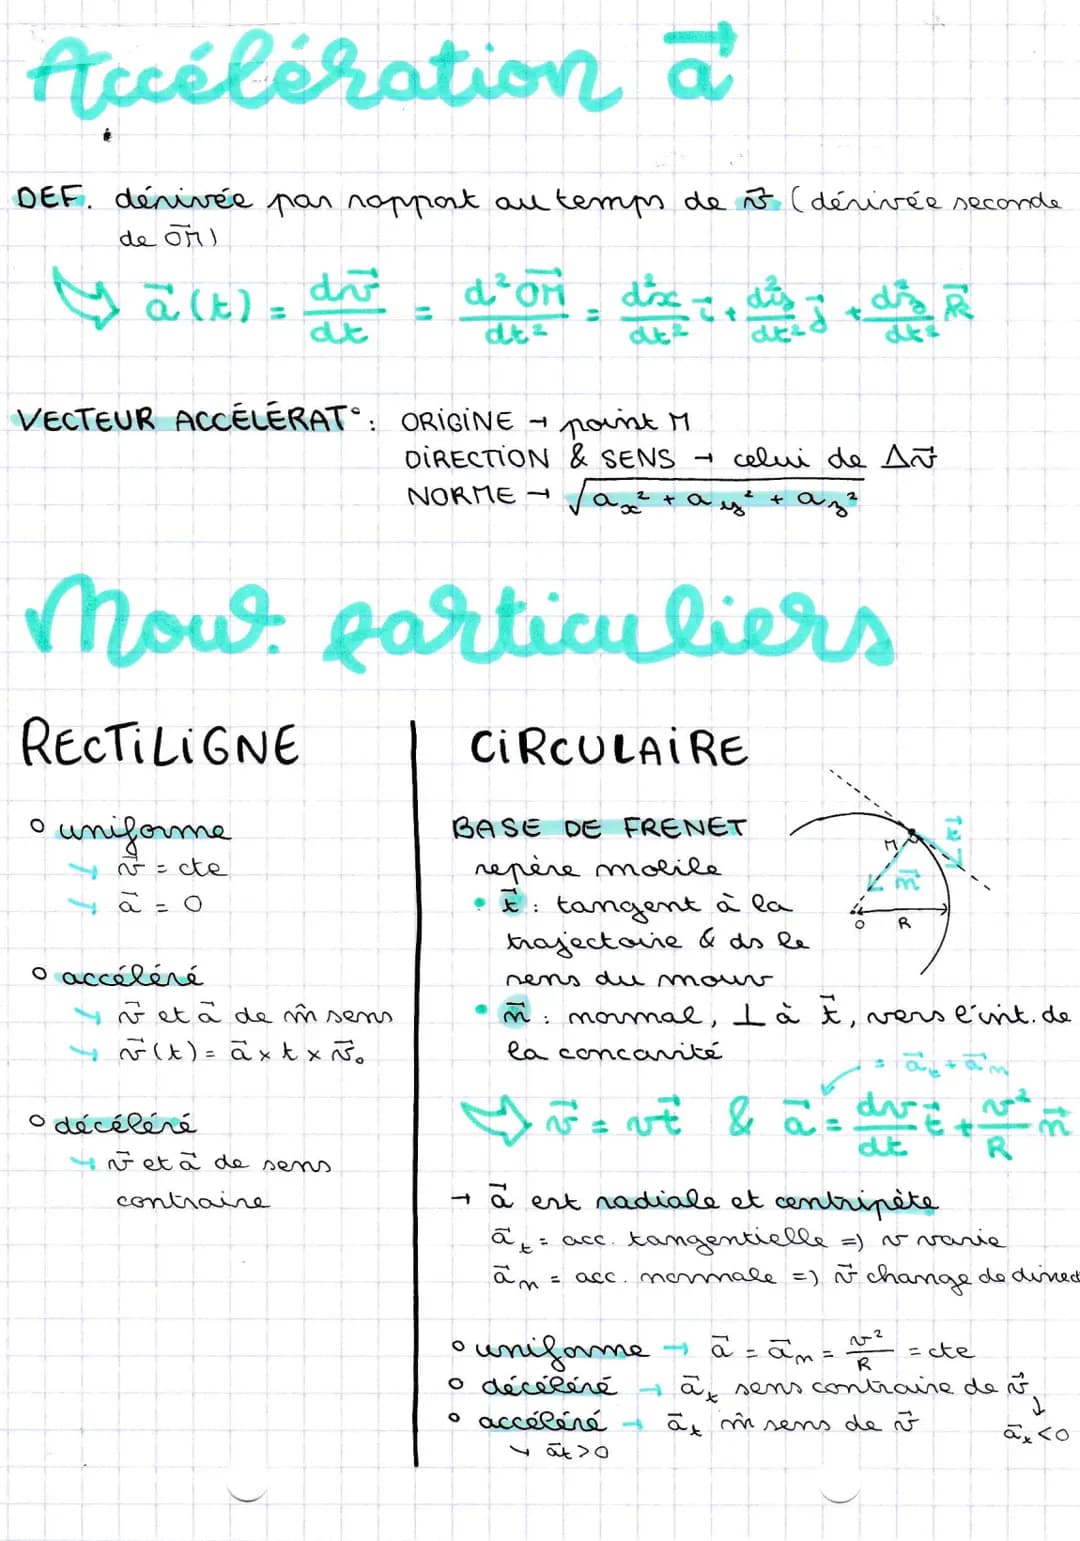 Accélération a⃗
DEF. dérivée par rapport au temps de v⃗ (dérivée seconde
de OM⃗)
↳ a⃗(t) = dv⃗/dt = d²OM⃗/dt² = d²x/dt² i⃗ + d²y/dt² j⃗ + d²z/dt² k⃗
VECTEUR ACCÉLÉRAT°: ORIGINE → point M
DIRECTION & SENS → celui de Δv⃗
NORME → √(aₓ² + a_y² + a_z²)
Mouv. particuliers
RECTILIGNE
o uniforme
↳ v⃗ = cte
↳ a⃗ = 0
o accéléré
↳ v⃗ et a⃗ de m̂ sens
↳ v⃗(t) = a⃗ × t × v⃗₀
o décéléré
↳ v⃗ et a⃗ de sens
contraire
CIRCULAIRE
BASE DE FRENET
repère mobile
• t⃗ : tangent à la
trajectoire & ds le
sens du mouv
• n⃗ : normal, ⊥ à t⃗, vers l'int. de
la concavité
M
t⃗
n⃗
O
R
= a⃗ₜ + a⃗ₙ
⇒ v⃗ = vt⃗ & a⃗ = dv/dt t⃗ + v²/R n⃗
→ a⃗ est radiale et centripète
a⃗ₜ = acc. tangentielle => v varie
a⃗ₙ = acc. normale => v⃗ change de direct
o uniforme → a⃗ = a⃗ₙ = v²/R = cte
o décéléré → a⃗ₜ sens contraire de v⃗
↓
a⃗ₜ<0
o accéléré → a⃗ₜ m̂ sens de v⃗
↳ a⃗ₜ>0